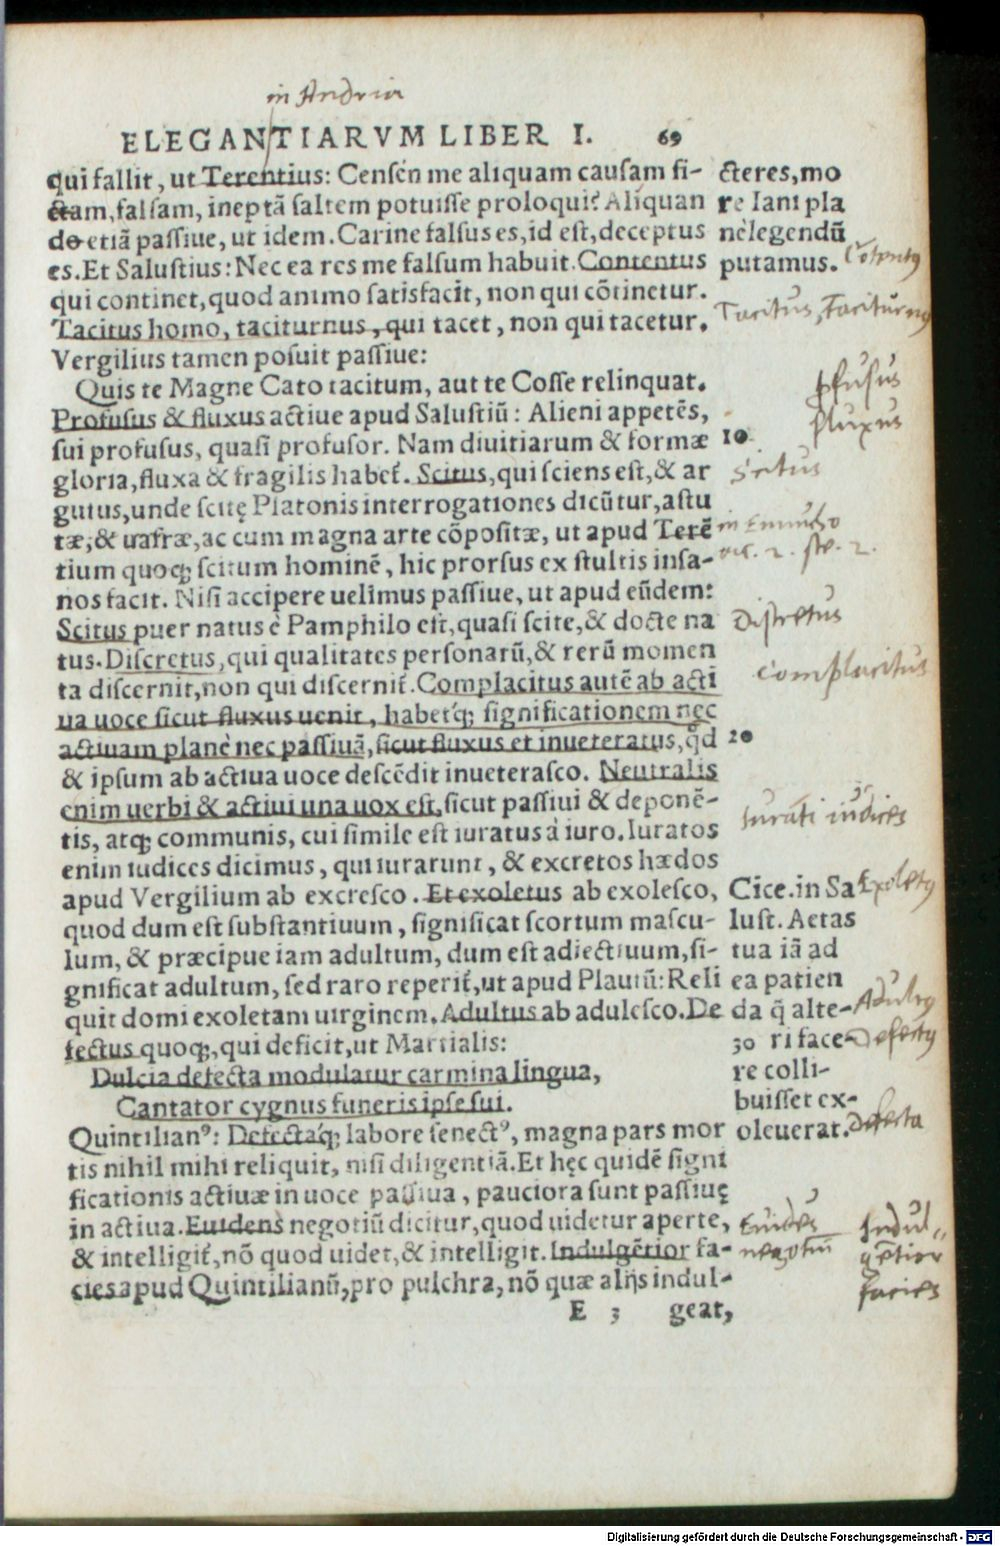 in Andria
ELEGANTIARVM LIBER I. 69
qui fallit, ut Terentius: Censén me aliquam causam fi-
ctam, falsam, ineptā saltem potuisse proloqui? Aliquan
do etiā passiue, ut idem. Carine falsus es, id est, deceptus
es. Et Salustius: Nec ea res me falsum habuit. Contentus
qui continet, quod animo satisfacit, non qui cōtinetur.
Tacitus homo, taciturnus, qui tacet, non qui tacetur.
Vergilius tamen posuit passiue:
Quis te Magne Cato tacitum, aut te Cosse relinquat.
Profusus & fluxus actiue apud Salustiū: Alieni appetēs,
sui profusus, quasi profusor. Nam diuitiarum & formæ
gloria, fluxa & fragilis habet̃. Scitus, qui sciens est, & ar
gutus, unde scitę Platonis interrogationes dicūtur, astu
tæ, & uafræ, ac cum magna arte cōpositæ, ut apud Terē
tium quoq; scitum hominē, hic prorsus ex stultis insa-
nos facit. Nisi accipere uelimus passiue, ut apud eūdem:
Scitus puer natus è Pamphilo est, quasi scite, & docte na
tus. Discretus, qui qualitates personarū, & rerū momen
ta discernit, non qui discernit̃. Complacitus autē ab acti
ua uoce sicut fluxus uenit, habetq́; significationem nec
actiuam planè nec passiuā, sicut fluxus et inueteratus, qd̃
& ipsum ab actiua uoce descēdit inueterasco. Neutralis
enim uerbi & actiui una uox est, sicut passiui & deponē-
tis, atq; communis, cui simile est iuratus à iuro. Iuratos
enim iudices dicimus, qui iurarunt, & excretos hædos
apud Vergilium ab excresco. Et exoletus ab exolesco,
quod dum est substantiuum, significat scortum mascu-
lum, & præcipue iam adultum, dum est adiectiuum, si-
gnificat adultum, sed raro reperit̃, ut apud Plautū: Reli
quit domi exoletam uirginem. Adultus ab adulesco. De
fectus quoq;, qui deficit, ut Martialis:
Dulcia defecta modulatur carmina lingua,
Cantator cygnus funeris ipse sui.
Quintilianꝰ: Defectaq́; labore senectꝰ, magna pars mor
tis nihil mihi reliquit, nisi diligentiā. Et hęc quidē signi
ficationis actiuæ in uoce passiua, pauciora sunt passiuę
in actiua. Euidens negotiū dicitur, quod uidetur aperte,
& intelligit̃, nō quod uidet, & intelligit. Indulgētior fa-
cies apud Quintilianū, pro pulchra, nō quæ alijs indul-
E 3 geat,
cteres, mo
re Iani pla
nè legendū
putamus.
Cōtentꝰ
Tacitus, Taciturnꝰ
ꝓfusus
fluxus
10
Scitus
in Eunucho
ac. 2. sce. 2.
Discretus
Complacitus
20
Iurati iudices
Cice. in Sa
lust. Aetas
tua iā ad
ea patien
da q̃ alte-
30 ri face-
re colli-
buisset ex-
oleuerat.
Exoletꝰ
Adultꝰ
Defectꝰ
Defecta
Euidēs
negotiū
Indul-
gētior
facies
Digitalisierung gefördert durch die Deutsche Forschungsgemeinschaft - DFG